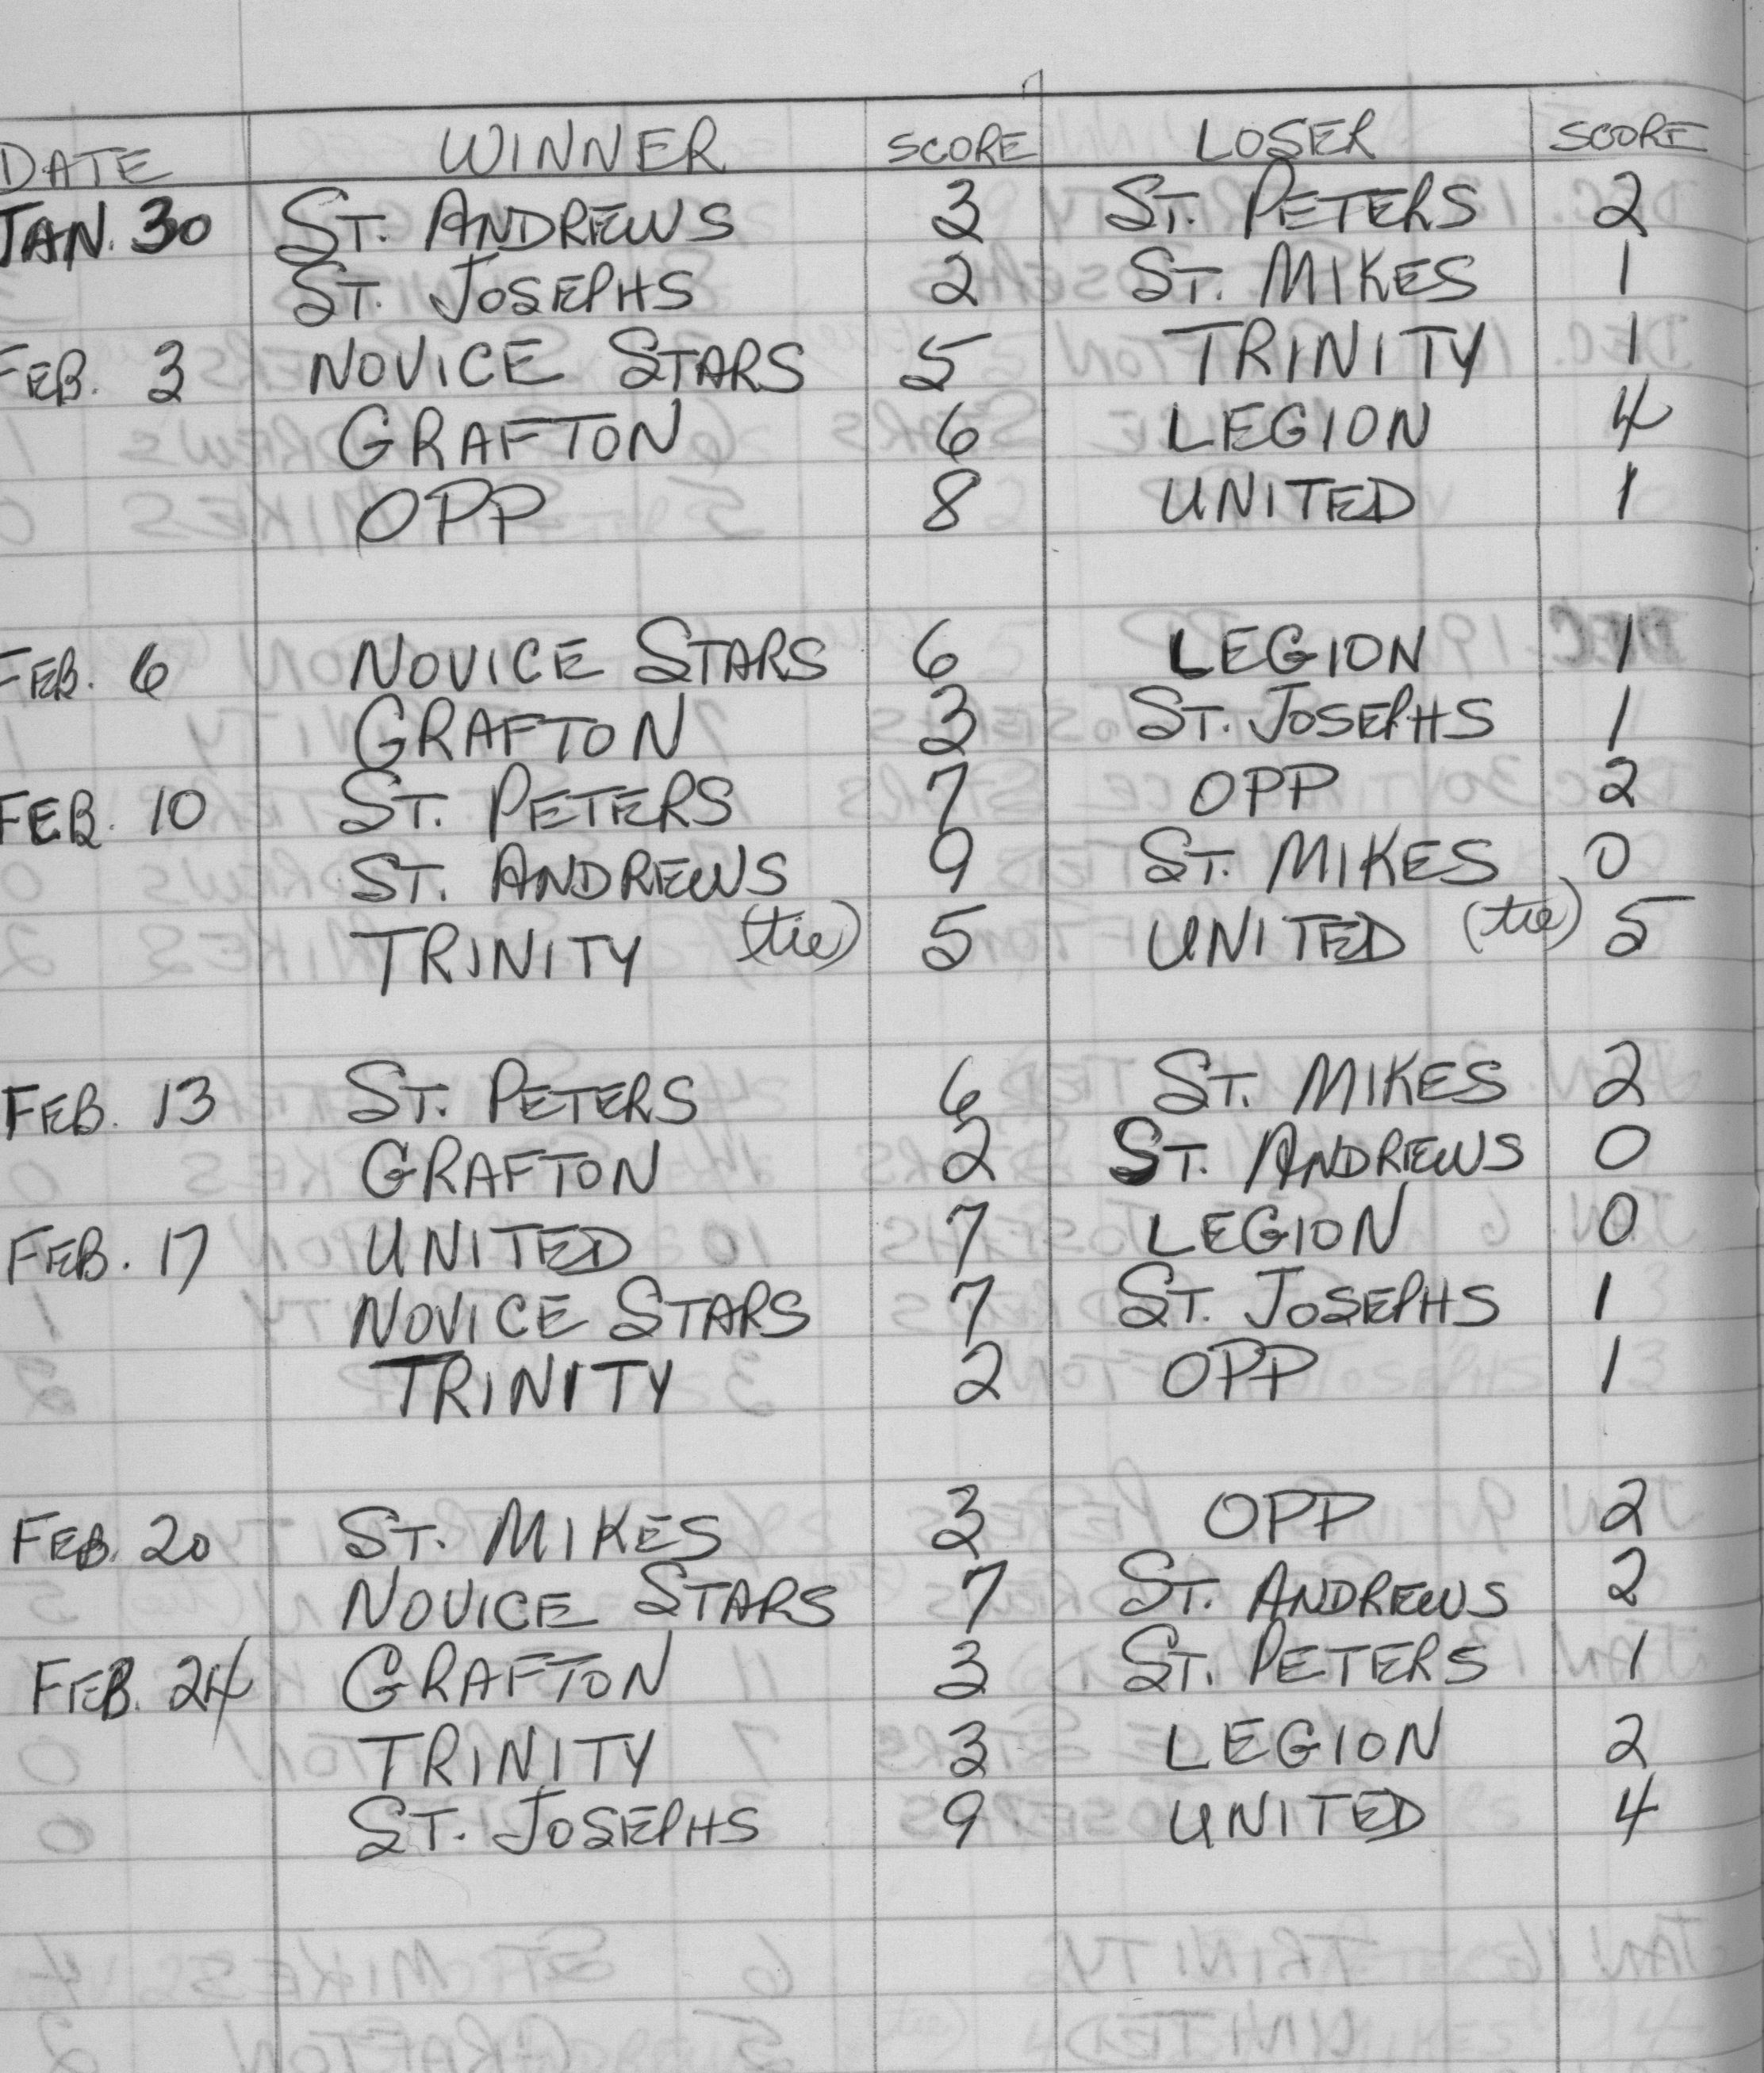 DATE WINNER SCORE LOSER SCORE
JAN. 30 ST. ANDREWS 3 ST. PETERS 2
ST. JOSEPHS 2 ST. MIKES 1
FEB. 3 NOVICE STARS 5 TRINITY 1
GRAFTON 6 LEGION 4
OPP 8 UNITED 1
FEB. 6 NOVICE STARS 6 LEGION 1
GRAFTON 3 ST. JOSEPHS 1
FEB. 10 ST. PETERS 7 OPP 2
ST. ANDREWS 9 ST. MIKES 0
TRINITY (tie) 5 UNITED (tie) 5
FEB. 13 ST. PETERS 6 ST. MIKES 2
GRAFTON 2 ST. ANDREWS 0
FEB. 17 UNITED 7 LEGION 0
NOVICE STARS 7 ST. JOSEPHS 1
TRINITY 2 OPP 1
FEB. 20 ST. MIKES 3 OPP 2
NOVICE STARS 7 ST. ANDREWS 2
FEB. 24 GRAFTON 3 ST. PETERS 1
TRINITY 3 LEGION 2
ST. JOSEPHS 9 UNITED 4